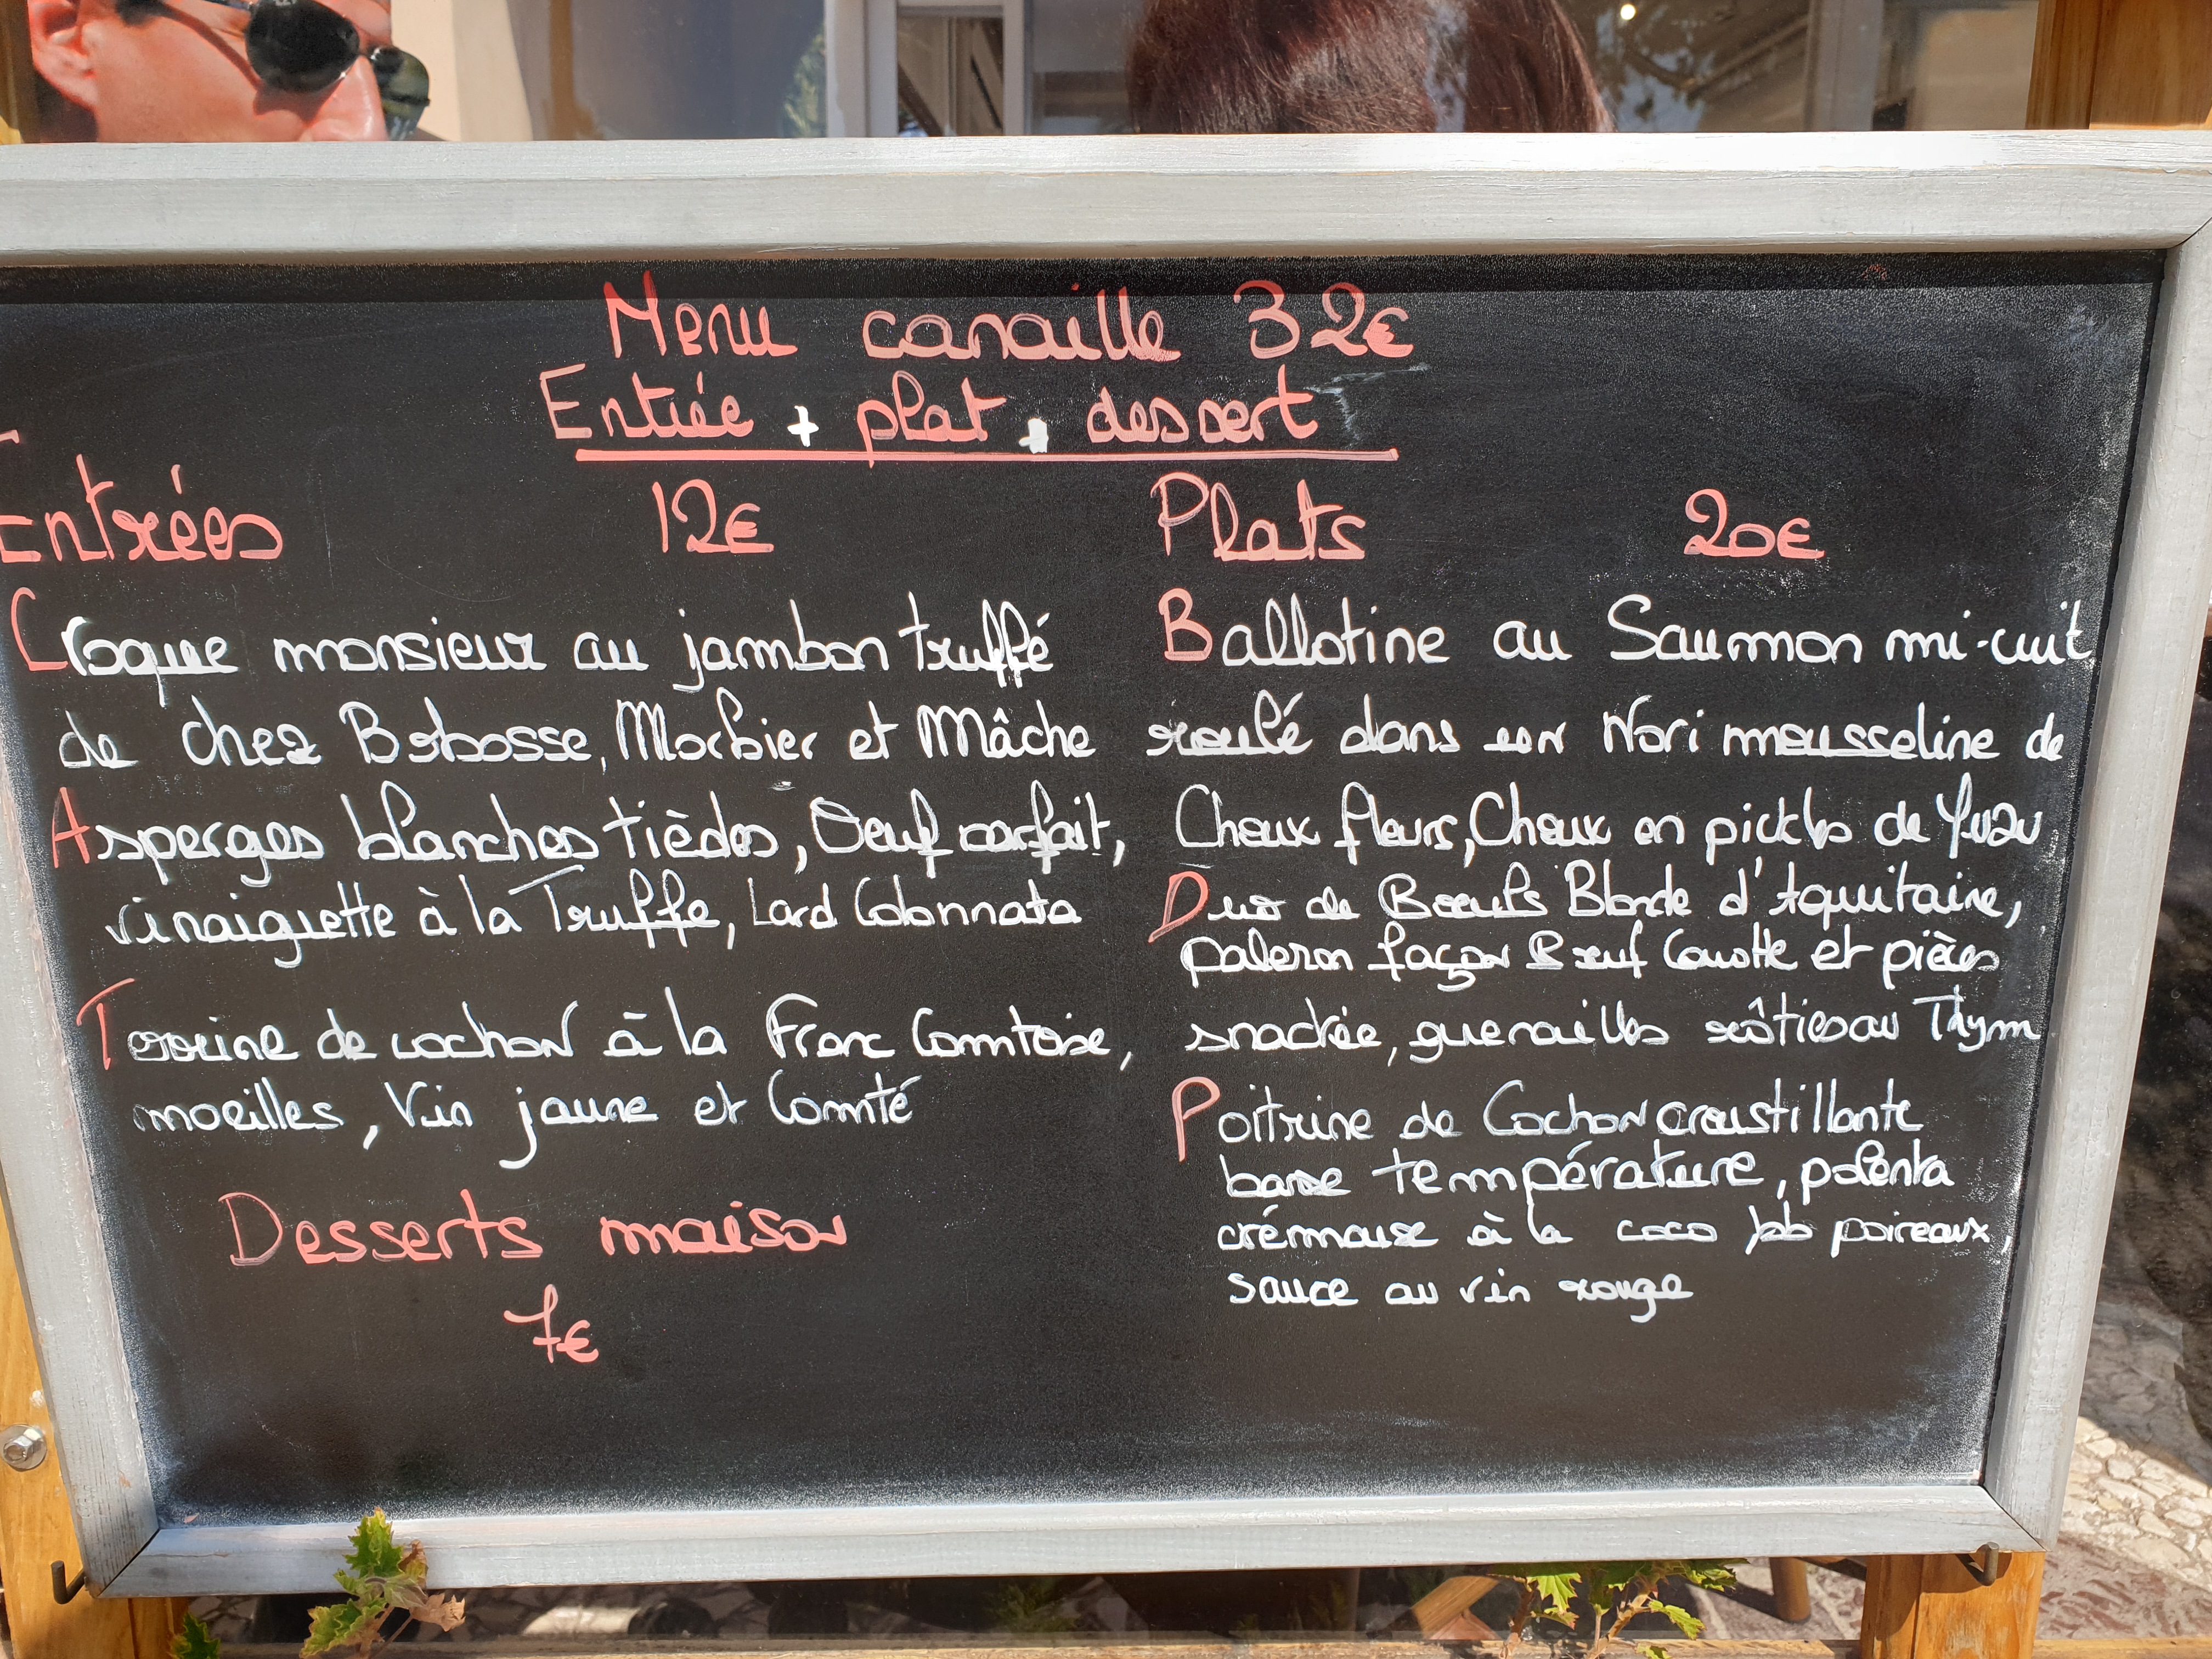 Menu canaille 32€
Entrée + plat + dessert
Entrées 12€
Croque monsieur au jambon truffé
de chez Bobosse, Morbier et Mâche
Asperges blanches tièdes, Oeuf parfait,
vinaiguette à la Truffe, Lard Colonnata
Terrine de cochon à la Franc Comtoise,
morilles, Vin jaune et Comté
Desserts maison
7€
Plats 20€
Ballotine au Saumon mi-cuit
roulé dans son Nori mousseline de
Choux fleurs, Choux en pickles de Yuzu
Duo de Boeufs Blonde d'Aquitaine,
paleron façon Boeuf Carotte et pièces
snackée, guenailles rôties au Thym
Poitrine de Cochon croustillante
basse température, polenta
crémeuse à la coco poireaux,
sauce au vin rouge